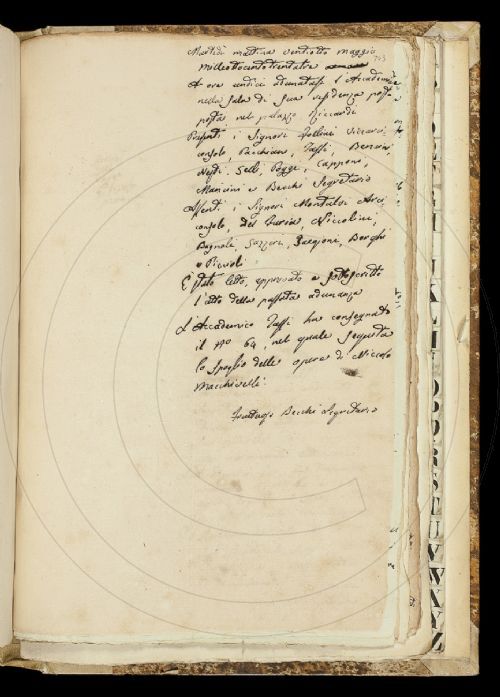 Martedì mattina ventotto maggio
milleottocentotrentatre
A ore undici adunatasi l'Accademia
nella sala di sua residenza posta
posta, nel palazzo Riccardi
Presenti i Signori Follini Vicearci=
consolo, Zaffi, Bencini,
Nesti, Gelli, Poggi, Capponi,
Mancini e Becchi Segretario
Assenti i Signori Montalvi Arci=
consolo, Del Furia, Niccolini,
Bagnoli, Gazzeri, Targioni, Borghi
e
È stato letto, approvato e sottoscritto
l'atto della passata adunanza
L'Accademico Zaffi ha consegnato
il no 64, nel quale seguita
lo spoglio delle opere di Niccolò
Macchiavelli.
Fruttuoso Becchi Segretario
O
P
Q
R
S
T
U
V
W
X
Y
Z